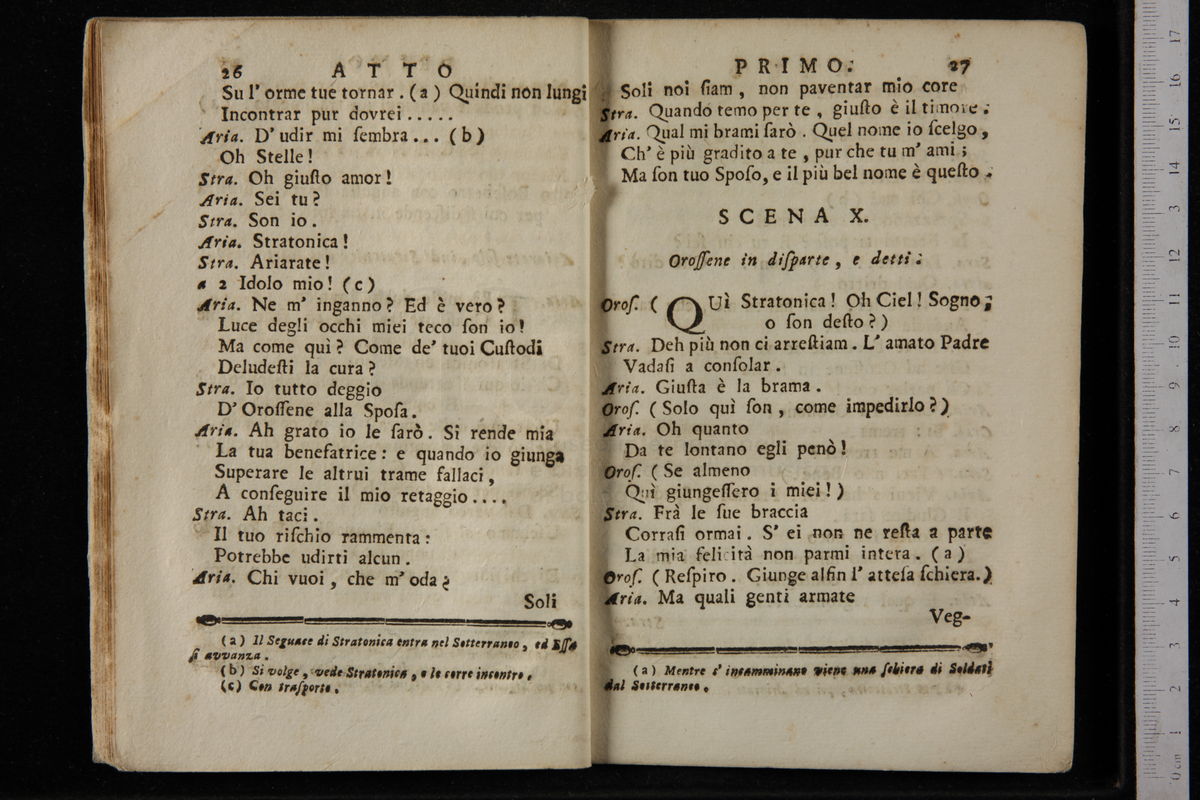 26 ATTO
Su l' orme tue tornar . (a) Quindi non lungi
Incontrar pur dovrei .....
Aria. D' udir mi ſembra ... (b)
Oh Stelle !
Stra. Oh giuſto amor !
Aria. Sei tu ?
Stra. Son io .
Aria. Stratonica !
Stra. Ariarate !
a 2 Idolo mio ! (c)
Aria. Ne m' inganno ? Ed è vero ?
Luce degli occhi miei teco ſon io !
Ma come quì ? Come de' tuoi Cuſtodi
Deludeſti la cura ?
Stra. Io tutto deggio
D' Oroſſene alla Spoſa .
Aria. Ah grato io le ſarò . Si rende mia
La tua benefatrice : e quando io giunga
Superare le altrui trame fallaci ,
A conſeguire il mio retaggio ....
Stra. Ah taci .
Il tuo riſchio rammenta :
Potrebbe udirti alcun .
Aria. Chi vuoi , che m' oda ?
Soli
(a) Il Seguace di Stratonica entra nel Sotterraneo , ed Eſſa
ſi avvanza .
(b) Si volge , vede Stratonica , e le corre incontro .
(c) Con traſporto .
PRIMO. 27
Soli noi ſiam , non paventar mio core
Stra. Quando temo per te , giuſto è il timore .
Aria. Qual mi brami ſarò . Quel nome io ſcelgo ,
Ch' è più gradito a te , pur che tu m' ami ;
Ma ſon tuo Spoſo, e il più bel nome è queſto .
SCENA X.
Oroſſene in diſparte , e detti .
Oroſ. ( QUì Stratonica ! Oh Ciel ! Sogno ;
o ſon deſto ? )
Stra. Deh più non ci arreſtiam . L' amato Padre
Vadaſi a conſolar .
Aria. Giuſta è la brama .
Oroſ. ( Solo quì ſon , come impedirlo ? )
Aria. Oh quanto
Da te lontano egli penò !
Oroſ. ( Se almeno
Quì giungeſſero i miei ! )
Stra. Frà le ſue braccia
Corraſi ormai . S' ei non ne reſta a parte
La mia felicità non parmi intera . (a)
Oroſ. ( Reſpiro . Giunge alfin l' atteſa ſchiera. )
Aria. Ma quali genti armate
Veg-
(a) Mentre s' incamminano viene una ſchiera di Soldati
dal Sotterraneo .